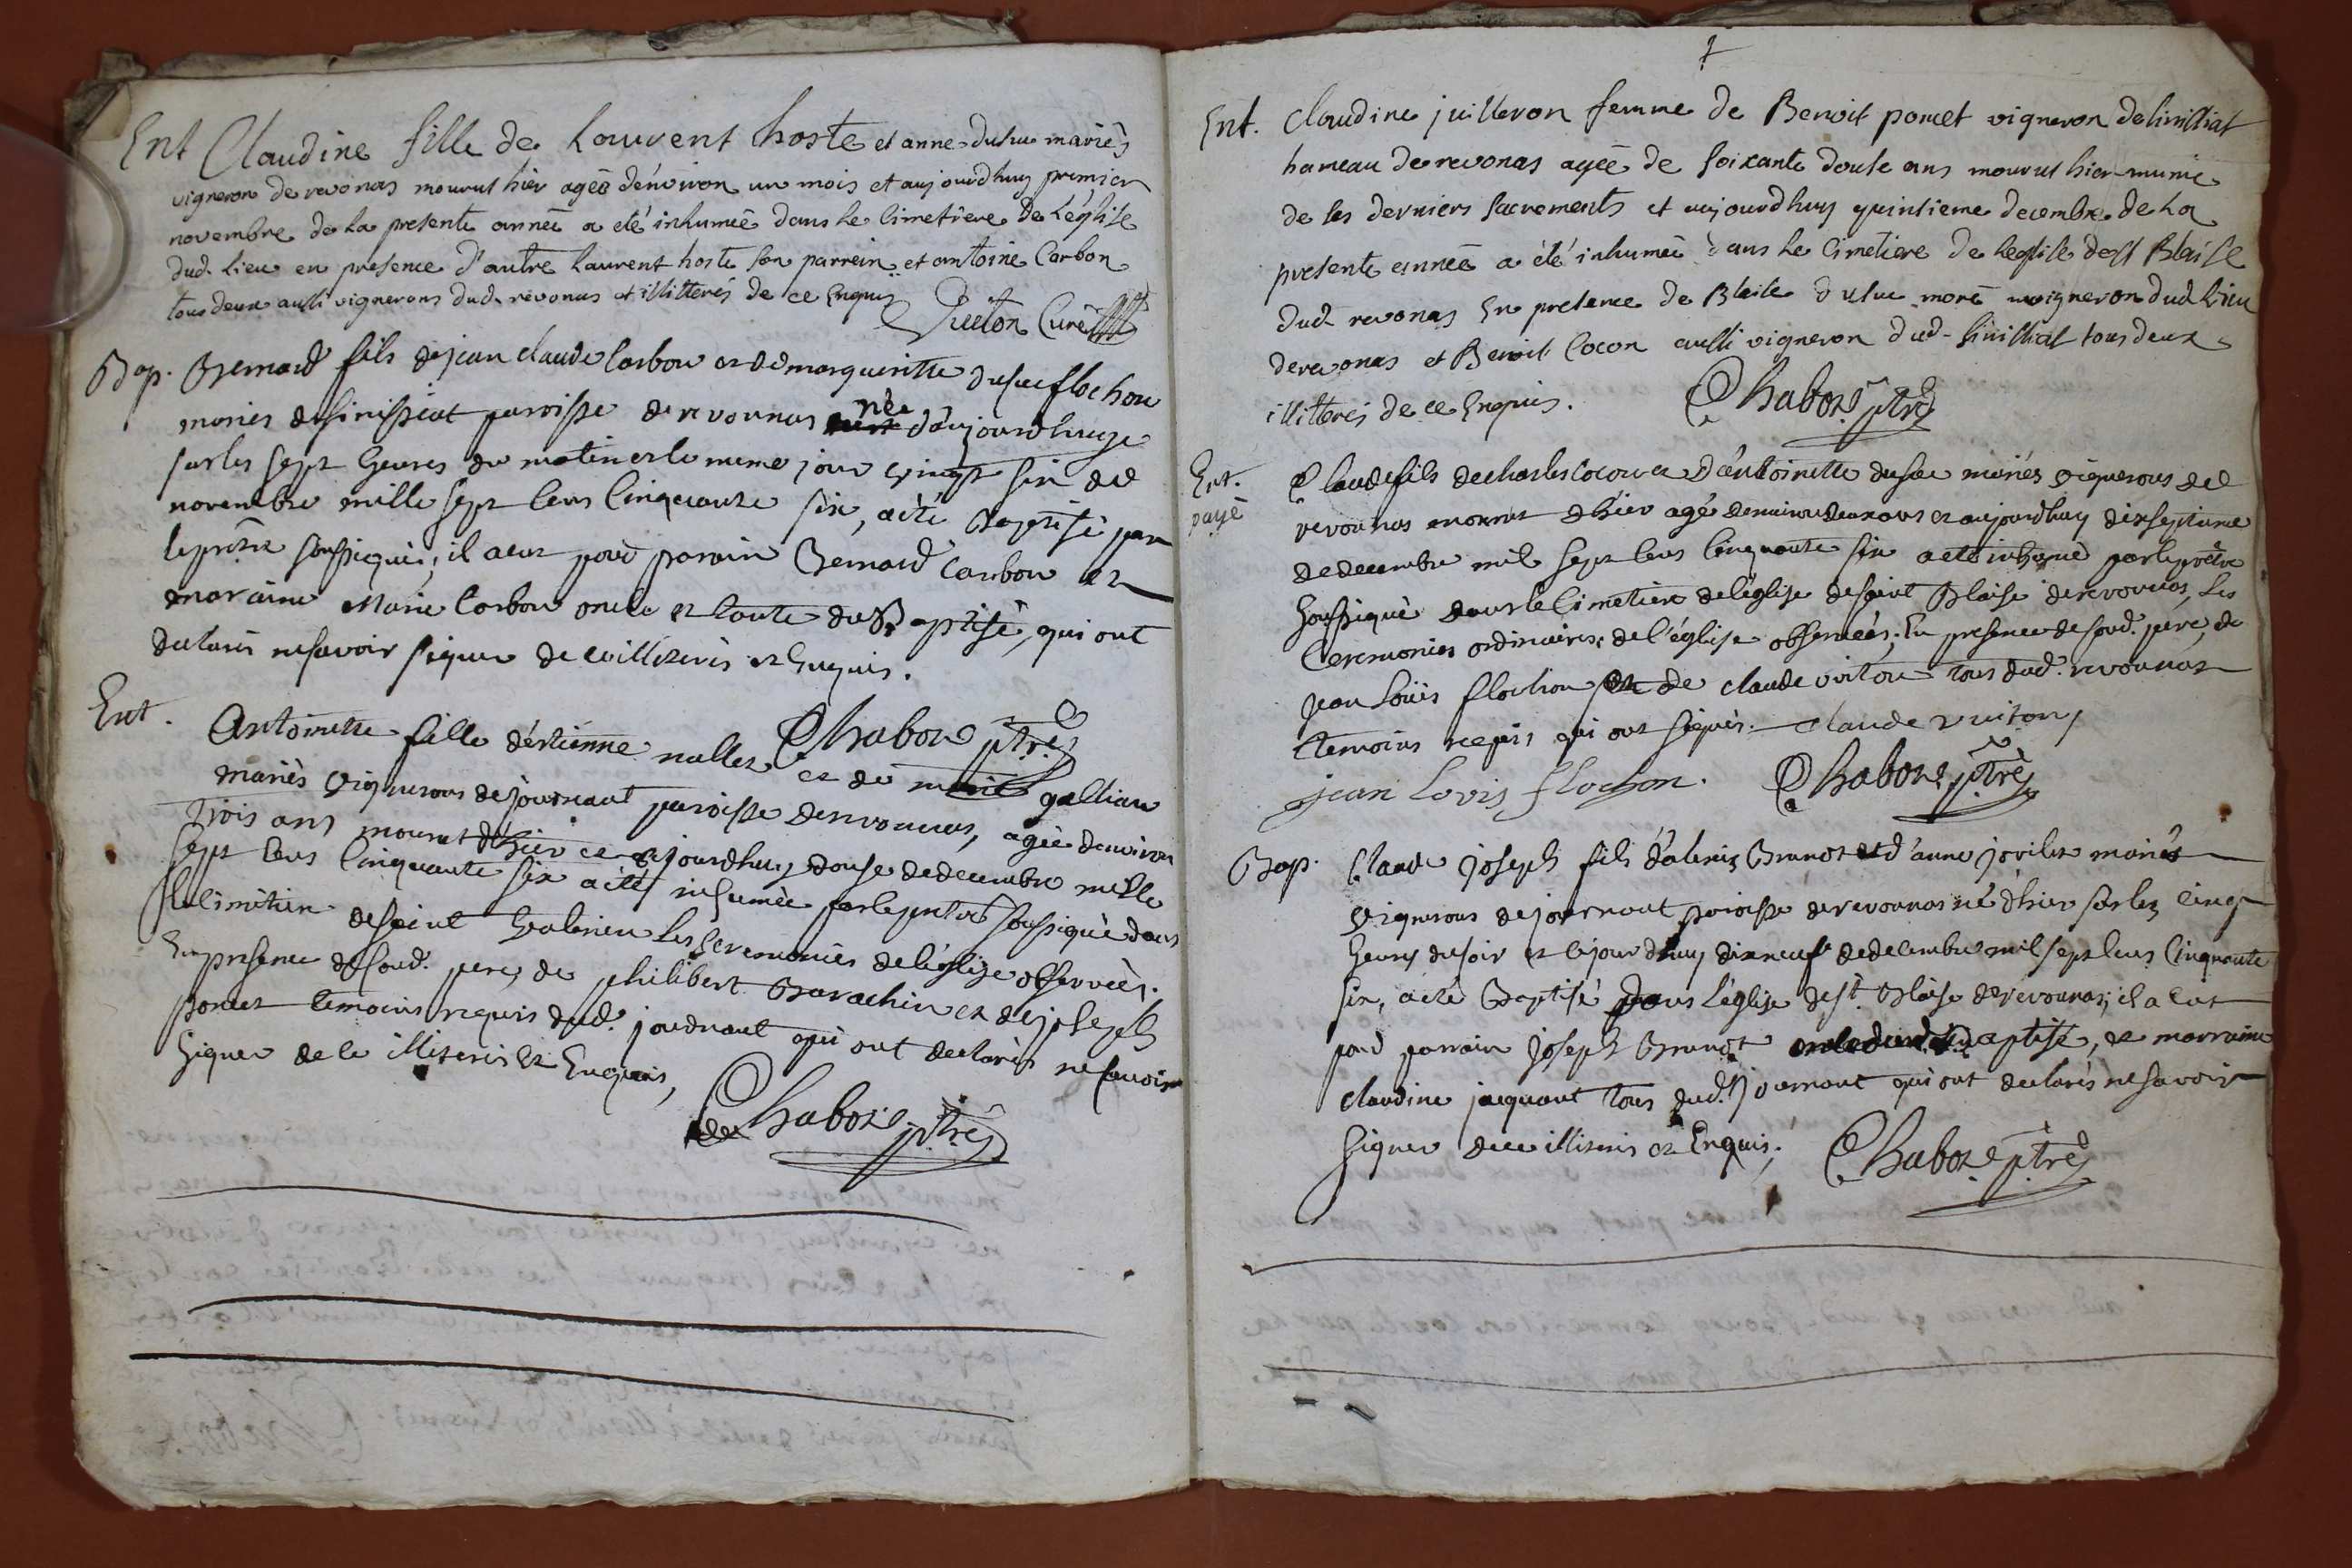 Ent Claudine fille de Laurent hoste et anne dusuc mariés
vigneron de revonas mourut hier agéé d'environ un mois et aujourdhuy premier
novembre de la presente année a eté inhumeé dans le Cimetiere de L'église
dud. Lieu en presence d'autre Laurent hoste son parrein et antoine Carbon
tous deux aussi vignerons dud. revonas et illitterés de ce Enquis Vuiton Curé
Bap. Bernard fils de jean claude Carbon et de margueritte dusuc flochon
mariés de sinissiat paroisse de revonnas née d'aujourdhuye
sur les sept heures du matin et le meme jour vingt six de
novembre mille sept cens Cinquante six, a été Baptisé par
le prêtre soussigné; il a eut pour parain Bernard Carbon et
maraine Marie Carbon oncle et tante du Baptisé, qui ont
declarés ne savoir signer de ce illiterés et Enquis.
Ent. Antoinette fille d'étienne nallet et de marie gallian Chabone ptre
mariés vignerons de journant paroisse de revonnas, agée denviron
Trois ans mourut d'hier et aujourdhuy douse de decembre mille
sept cens Cinquante six a été inhumée par le prêtre soussigné dans
le Cimitier de saint valerien Les Ceremonies de l'église observées.
En presence de soud. pere, de philibert Barachin et de joseph
poncet temoins requis dud. journant qui ont declarés ne savoir
signer de ce illiterés et Enquis,
Chabone ptre
Ent. Claudine juilleron femme de Benoit poncet vigneron de sinissiat
hameau de revonas agéé de soixante douse ans mourut hier munie
de ses derniers sacrements et aujourdhuy quinsieme decembre de La
presente année a été inhumeé dans le Cimetiere de l'eglise de st Blaise
dud. revonas En presence de Blaise dusuc moré vigneron dud. Lieu
de revonas et Benoit Cocon aussi vigneron dud. sinissiat tous deux
illiterés de ce Enquis. Chabone ptre
Ent. Claude fils de charles Cocon et d'antoinette dusuc mariés vignerons de
payé revonnas mourut d'hier agé denviron deux ans et aujourdhuy dix septieme
de decembre mil sept cens Cinquante six a été inhumé par le prêtre
soussigné dans le Cimetiere de l'église de saint Blaise de revonnas, Les
Ceremonies ordinaires de l'église observées; En presence de soud. pere, de
jean Louis flochon et de claude viton tous dud. revonnas
temoins requis qui ont signés. claude vuiton,
jean Lovis flochon. Chabone ptre
Bap. Claude joseph fils d'alexis Brunot et d'anne jovilet mariés
vignerons de journant paroisse de revonnas né d'hier sur les cinq
heures du soir et cejourdhuy dix neuf de decembre mil sept cens Cinquante
six, a été Baptisé dans L'église de st. Blaise de revonnas; il a eut
pour parrain joseph Brunot Baptisé, et marraine
claudine jacquant tous dud. journant qui ont declarés ne savoir
signer de ce illiterés et Enquis. Chabone ptre